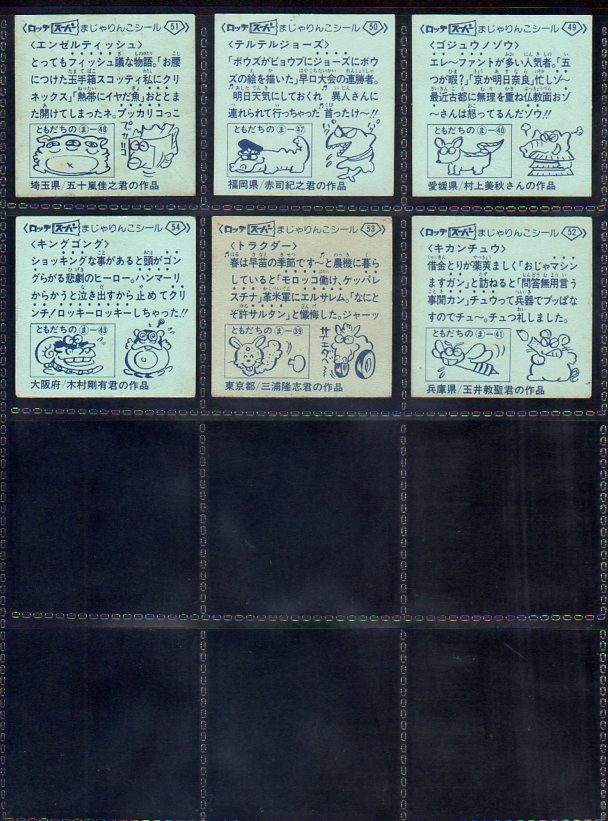 ロッテ スーパー まじゃりんこシール 51
〈エンゼルティッシュ〉
とってもフィッシュ議な物語。「お腰
につけた玉手箱スコッティ私にクリ
ネックス」「熱帯にイヤだ魚」おととま
た開けてしまったネ。プッカリコっこ
ともだちの ま—48
プカリーコ
埼玉県/五十嵐佳之君の作品
ロッテ スーパー まじゃりんこシール 50
〈テルテルジョーズ〉
「ボウズがビョウブにジョーズにボウ
ズの絵を描いた」早口大会の連勝者。
明日天気にしておくれ 異人さんに
連れられて行っちゃった 首ったけ〜!!
ともだちの ま—47
福岡県/赤司紀之君の作品
ロッテ スーパー まじゃりんこシール 49
〈ゴジュウノゾウ〉
エレ〜ファントが多い人気者。「五
つが暇?」「京が明日奈良」忙しゾ〜
最近古都に無理を重ね仏教面おゾ
〜さんは怒ってるんだゾウ!!
ともだちの ま—40
愛媛県/村上美秋さんの作品
ロッテ スーパー まじゃりんこシール 54
〈キングゴング〉
ショッキングな事があると頭がゴン
グらがる悲劇のヒーロー。ハンマーリ
からかうと泣き出すから止めてクリ
ンチ/ロッキーロッキーしちゃった!!
ともだちの ま—43
大阪府/木村剛有君の作品
ロッテ スーパー まじゃりんこシール 53
〈トラクダー〉
春は早苗の季節です〜と農機に暮ら
しているど「モロッコ働け、ケッパレ
スチナ」革米軍にエルサレム。「なにと
ぞ許サルタン」と懺悔した。ジャーッ
ともだちの ま—39
東京都/三浦隆志君の作品
ロッテ スーパー まじゃりんこシール 52
〈キカンチュウ〉
借金とりが薬莢ましく「おじゃマシン
ますガン」と訪ねると「問答無用言う
事聞カン」チュウって兵器でブッぱな
すのでチュ〜。チュつ礼しました。
ともだちの ま—41
兵庫県/玉井教聖君の作品